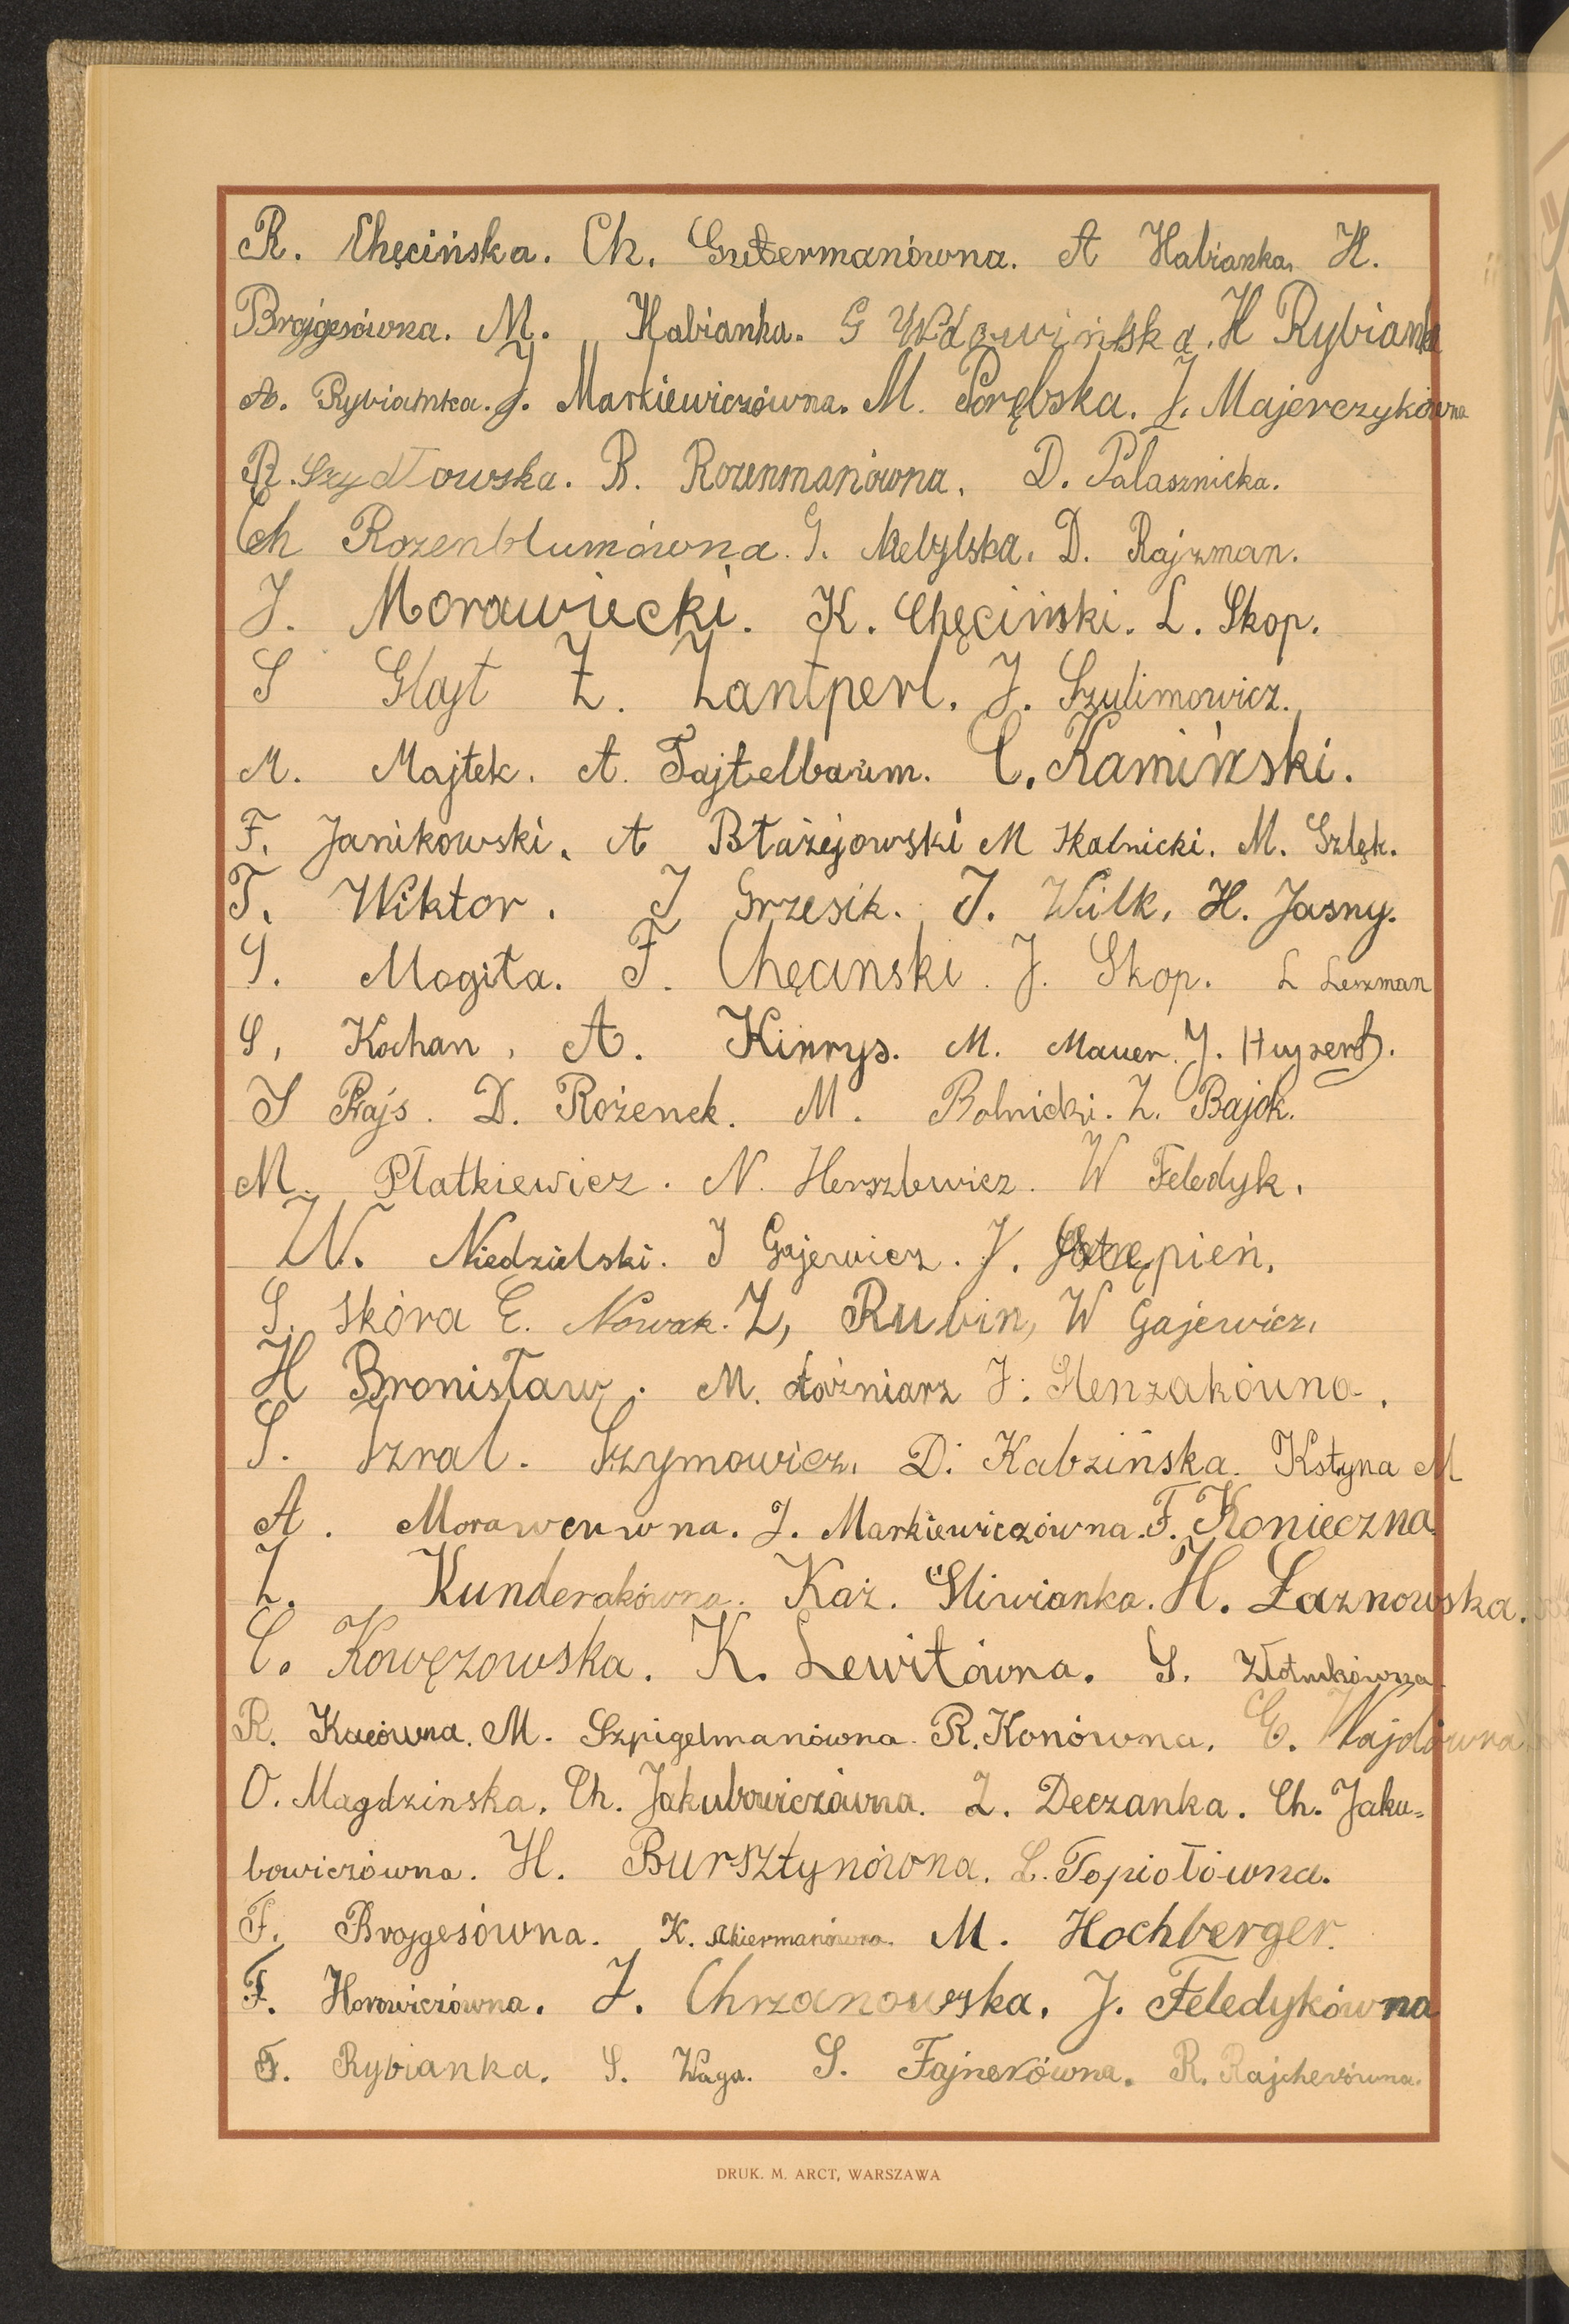 R. Chęcińska. Ch. Gutermanówna. A Habianka. H.
Brajgesówna. M. Habianka. G Wdowińska. H Rybianka
A. Rybianka. J. Markiewiczówna. M. Porębska. J. Majerczykówna
R. Szydłowska. R. Rozenmanówna. D. Palasznicka.
Ch Rozenblumówna. G. D. Rajzman.
J. Morawiecki. K. Chęciński. L. Skop.
S Glajt Z. Zantperl. J. Szulimowicz.
M. Majtek. A. Tajtelbaum. C. Kamiński.
F. Janikowski. A Błażejowski M Kalnicki. M. Szlęk.
T. Wiktor. J Grzesik. J. Wilk. H. Jasny.
S. Mogiła. F. Chęcinski. J. Skop. L Lenzman
S. Kochan. A. Kinrys. M. Mauer. J.
J Rajs. D. Rożenek. M. Rolnicki. Z. Bajok.
M. Płatkiewicz. N. Herszlewicz. W Feledyk.
W. Niedzielski. J Gajewicz. J. Stępień.
S. Skóra E. Nowak. Z, Rubin, W Gajewicz.
H Bronisław. M. Łaźniarz J. Slenzakówna.
S. Szral. Szymowicz. D. Kabzińska. Kstyna M
A. Morawcuwna. J. Markiewiczówna. F. Konieczna
Z. Kunderakówna. Kaź. Sliwianka. H. Łaznowska.
C. Kowęzowska. K. Lewitówna. S. Złotnikówna
R. Kacówna. M. Szpigelmanówna. R. Konówna. E. Wajdówna
O. Magdzinska. Ch. Jakubowiczówna. Z. Deczanka. Ch. Jaku=
bowiczówna. H. Bursztynówna. L. Topiołówna.
F. Brajgesówna. K. Akiermanówna. M. Hochberger.
F. Horowiczówna. J. Chrzanowska. J. Feledykówna
F. Rybianka. S. Waga. S. Fajnerówna. R. Rajcherówna.
DRUK. M. ARCT, WARSZAWA